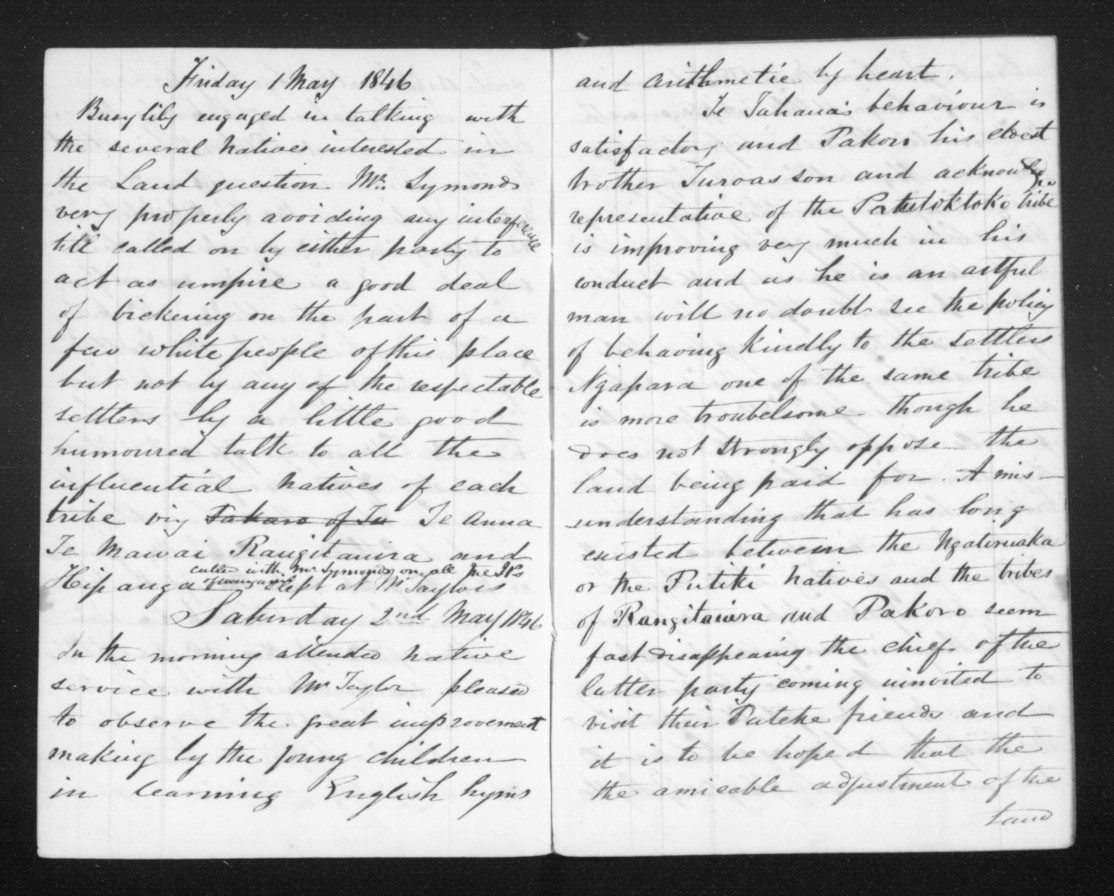 Friday 1 May 1846
Busylily engaged in talking with
the several natives interested in
the Land question Mr. Symonds
very properly avoiding any interference
till called on by either party to
act as umpire a good deal
of bickering on the part of a
few white people of this place
but not by any of the respectable
settlers by a little good
humoured talk to all the
influential natives of each
tribe viz Takaro of Tu Te Anna
Te Mawai Rangitauira and
called with Mr Symonds on all the JPs
Hipanga of Wanganui slept at Mr Taylors
Saturday 2nd May 1846
In the morning attended native
service with Mr Taylor pleased
to observe the great improvement
making by the young children
in learning English hyms
and arithmetic by heart.
Te Tahana's behaviour is
satisfactory and Pakoro his eldest
brother Turoas son and acknowledged
representative of the Patutoktoko tribe
is improving very much in his
conduct and as he is an artful
man will no doubt see the policy
of behaving kindly to the settlers
Ngapara one of the same tribe
is more troubelsome though he
does not strongly oppose the
land being paid for. A mis-
understanding that has long
existed between the Ngatiruaka
or the Putiki natives and the tribes
of Rangitauira and Pakoro seem
fast disappearing the chief of the
latter party coming uninvited to
visit their Puteke friends and
it is to be hoped that the
the amicable adjustment of the
Land